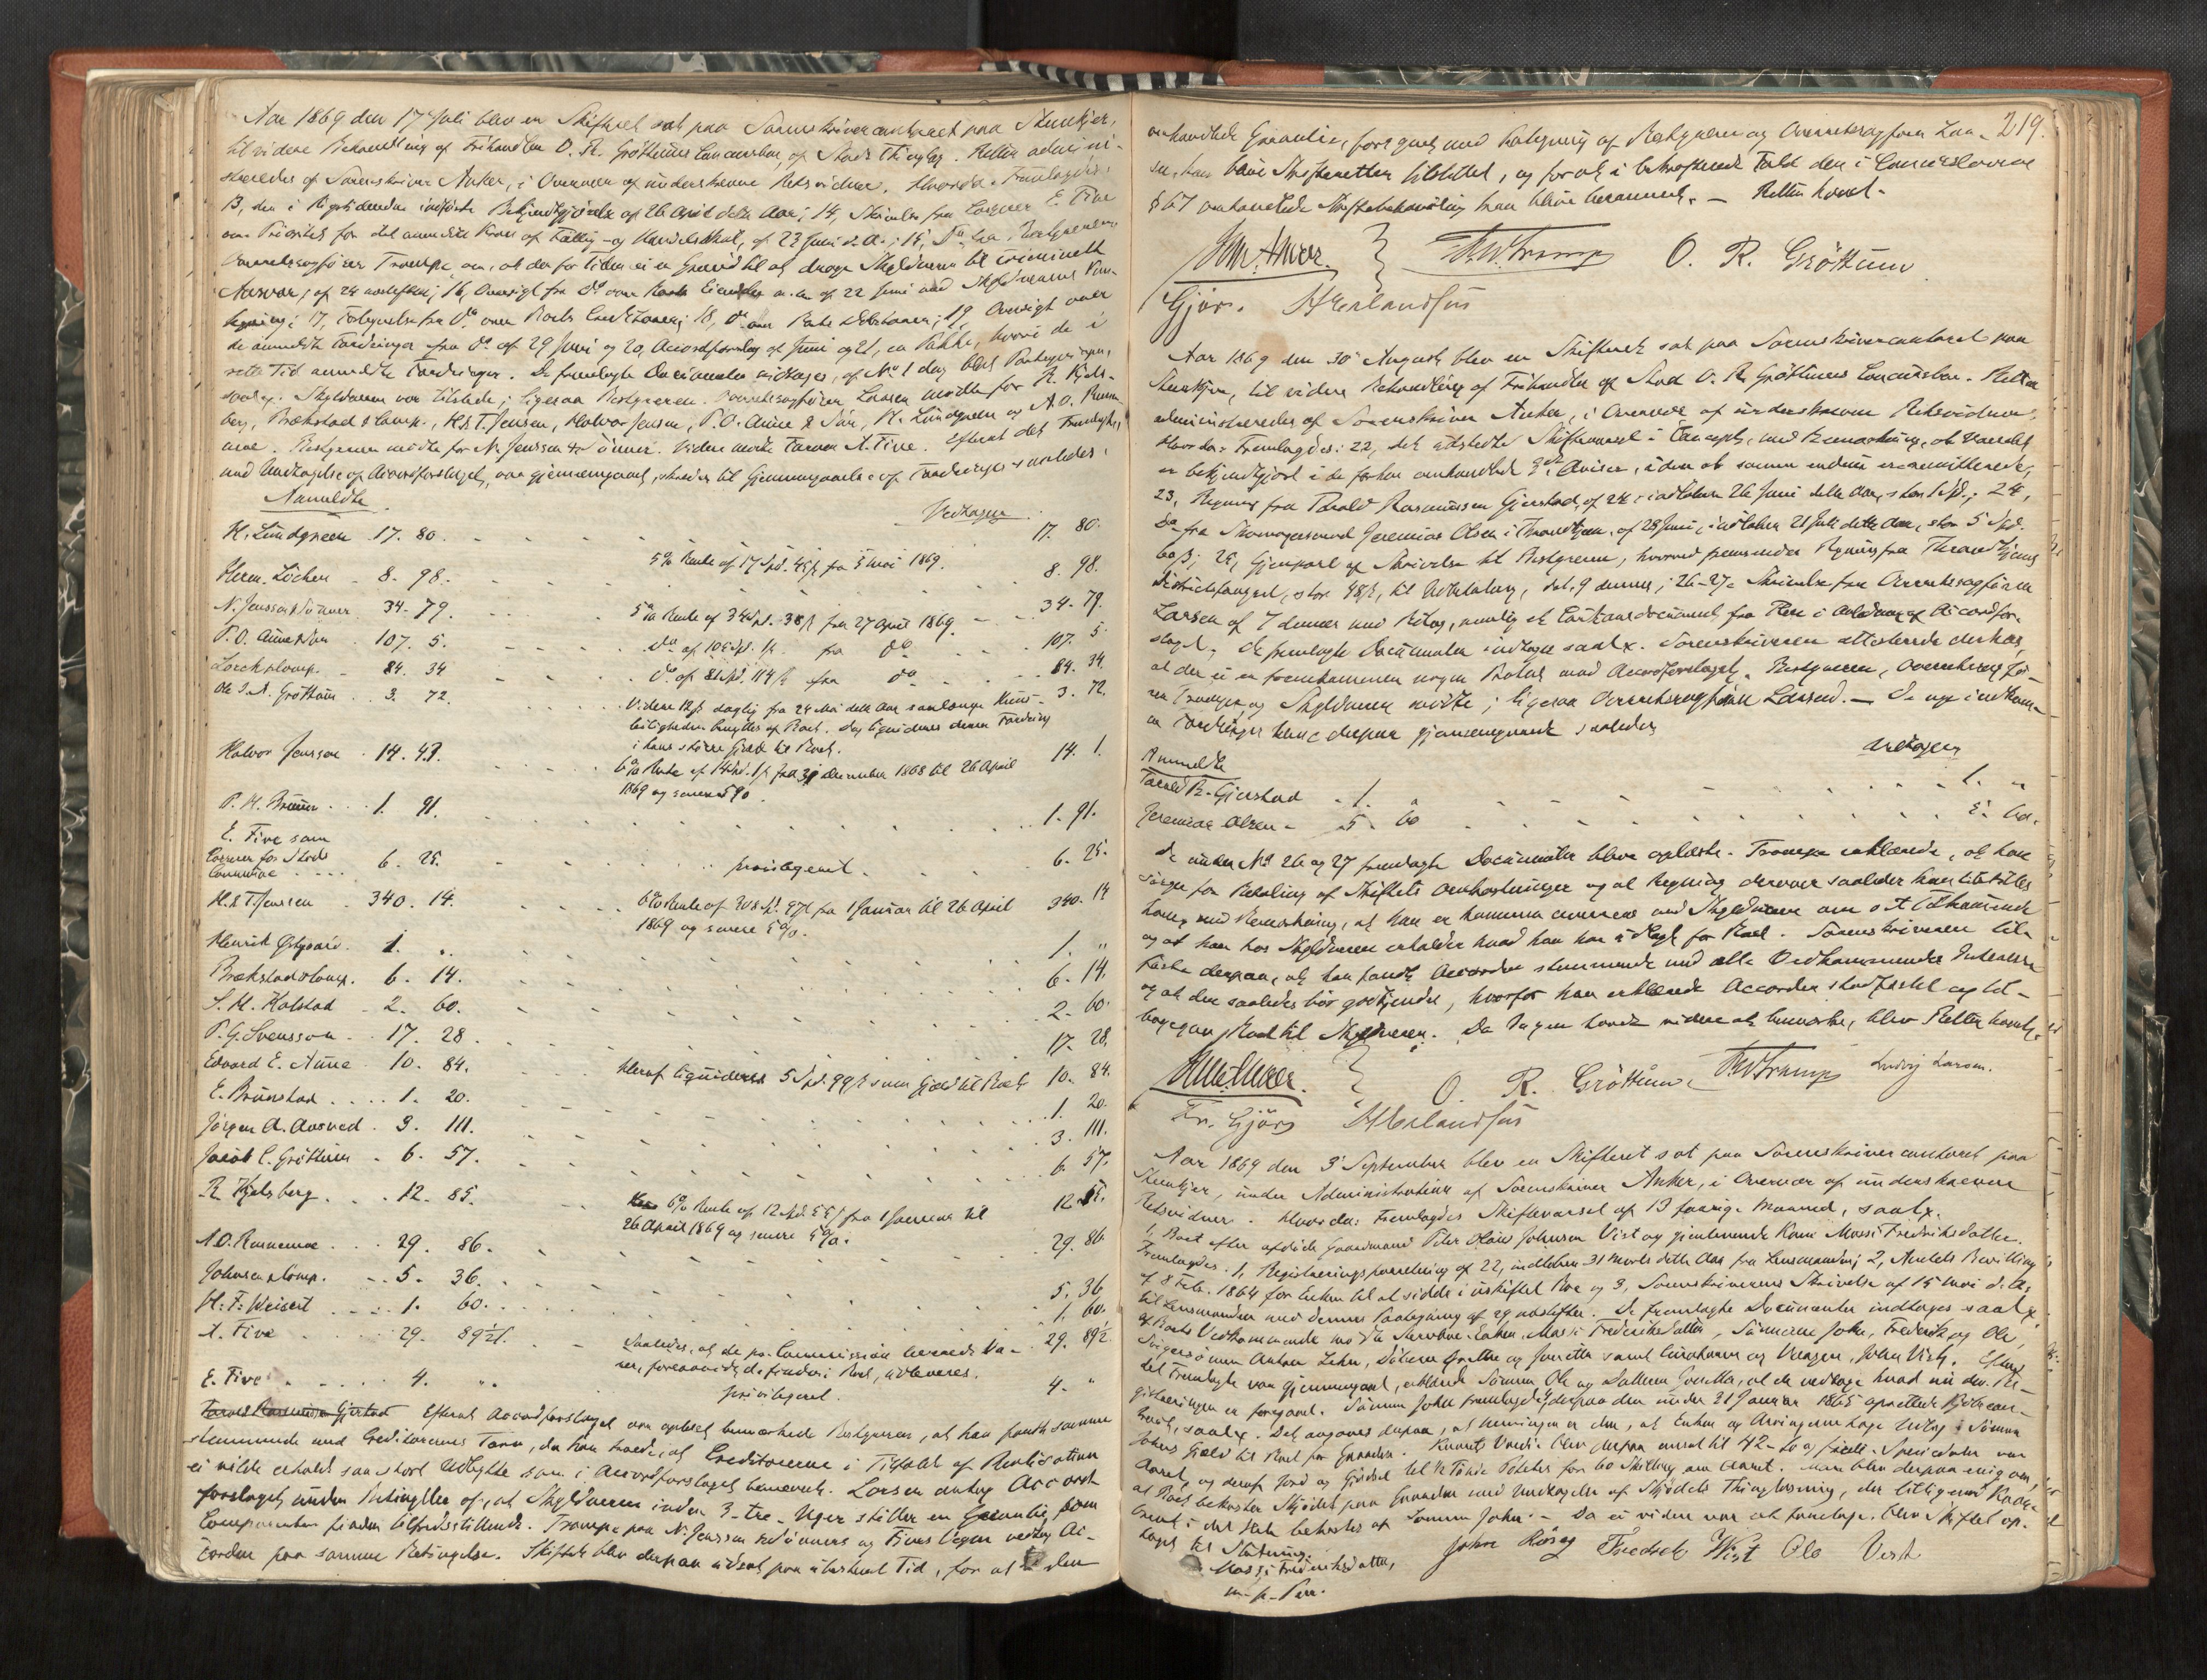 Aar 1869 den 17 Juli blev en Skifteret sat paa Sorenskrivercontoret paa Stenkjer,
til videre Behandling af Frihandler O. R. Gröttums Concursbo, af Stods Thinglag. Retten admini-
streredes af Sorenskriver Anker, i Overvær af underskrevne Retsvidner. Hvorda: Fremlagdes:
13, den i Rigstidende indførte Bekjendtgjørelse af 26 April dette Aar; 14, Skrivelse fra Casserer E. Five
om Prioritet for det anmeldte Krav af Fattig- og Skat, af 23 Juni d. A.; 15, Do fra Bestyreren
Overretssagfører Trampe om, at der for Tiden ei er Grund til at drage Skyldneren til criminelt
Ansvar, af 24 16, Oversigt fra Do over Boets Eiendele m. m. af 22 Juni med Skyldnerens
17, Fortegnelse fra Do over Boets Creditorer; 18, Do over Boets Debitorer; 19, Oversigt over
de anmeldte Fordringer fra Do af 29 Juni og 20, Accordforslag af Juni og 21, en Pakke, hvori de i
rette Tid anmeldte Fordringer. De fremlagte Documenter indtages, af No 1 dog blot
saal. Skyldneren var tilstede; ligesaa Bestyreren. Overretssagfører Larsen mødte for R. Kjels-
berg, Brækstad & Comp., H. & T. Jensen, Halvor Jensen, P. O. Aune & Søn, H. Lundgreen og A. O.
Bestyreren mødte for N. Jenssen & Sönner. Videre mødte A. Five. Efterat det Fremlagte,
med Undtagelse af Accordforslaget, var gjennemgaaet, skredes til Gjennemgaaelse af Fordringer saaledes:
Anmeldte
Vedtagen
H. Lundgreen 17. 80. 17. 80.
Herm. Löchen - 8. 98. 5 % Rente af 17 Spd. 45 ß fra 5 Mai 1869. 8. 98.
N. Jenssen & Sönner 34. 79. 5 % Rente af 34 Spd. 38 ß fra 27 April 1869. 34. 79.
P. O. Aune & Søn - 107. 5. Do af fra Do 107. 5.
Lorck & Comp. - 84. 34 Do af 81 Spd. 114 ß fra Do 84. 34.
Ole J. A. Gröttum - 3. 72. Videre 12 ß daglig fra 24 Mai dette Aar saalænge Huus- 3. 72.
leiligheden benyttes af Boet. Dog liquideres denne Fordring
i hans större Gjæld til Boet.
Halvor Jensen - 14. 6 % Rente af 14 Spd. 1 ß fra 31 December 1868 til 26 April 14. 1.
1869 og senere 5 %.
P. H. 1. 91. 1. 91.
E. Five som
Casserer for Stods
Commune 6. 25. privilegeret. 6. 25.
H. & T. Jensen 340. 14. 6 % Rente af fra 1 Januar til 26 April 340. 14
1869 og senere 5 %.
Henrik Østgaard. 1. „ 1. „
Brækstad & Comp. 6. 14. 6. 14.
S. H. Kalstad - 2. 60. 2. 60.
P. G. Svensson - 17. 28. 17. 28.
Edvard E. Aune - 10. 84. Heraf liquideres 5 Spd. 99 ß som Gjæld til Boet 10. 84.
E. Brunstad 1. 20. 1. 20.
Jörgen A. Aasved . 3. 111. 3. 111.
Jacob C. Gröttum - 6. 57. 6. 57.
R. Kjelsberg. 12. 85. 6 % Rente af 12 Spd. fra 1 Januar til 12. 85.
26 April 1869 og senere 5 %.
A. O. 29. 86. 29. 86
Johnsen & Comp. 5. 36. 5. 36
H. F. Weisert 1. 60. 1. 60.
A. Five 29. 89½. Saaledes, at de pr. Commission leverede Va- 29. 89½
rer, forsaavidt de findes i Boet, udleveres.
E. Five 4. „ privilegeret. 4. „
Efterat Accordforslaget var oplæst bemærkede Bestyreren, at han fandt samme
stemmende med Creditorernes Tarv, da han troede, at Creditorerne i Tilfælde af Realisation
ei vilde erholde saa stort Udbytte som i Accordforslaget bemærket. Larsen antog Accord-
forslaget under Betingelse af, at Skyldneren inden 3 - tre - Uger stiller en Garanti, som
Comparenten finder tilfredsstillende. Trampe paa N. Jenssen & Sönners og Fives Vegne vedtog Ac-
corden paa samme Betingelse. Skiftet blev derpaa udsat paa ubestemt Tid, for at den
219.
omhandlede Garantie, forsynet med Paategning af Bestyreren og Overretssagfører Lar-
sen, kan blive Skifteretten tilstillet, og for at i bekræftende Fald den i Concursloven
§ 67 omhandlede Skiftebehandling kan blive berammet. — Retten hævet.
Anker. } Trampe O. R. Gröttum
Gjörs. H Erlandsus
Aar 1869 den 30 August blev en Skifteret sat paa Sorenskrivercontoret paa
Stenkjer, til videre Behandling af Frihandler af Stod O. R. Gröttums Concursbo. Retten
administreredes af Sorenskriver Anker, i Overvær af underskrevne Retsvidner.
Hvorda: Fremlagdes: 22, det udstedte Skiftevarsel i Concept, med Bemærkning, at Varselet
er bekjendtgjort i de forhen omhandlede Aviser, iden at samme endnu ere
23, Regning fra Torald Rasmussen Gjerstad, af 24, indløben 26 Juni dette Aar, stor 1 Spd.; 24,
Do fra Skomagersvend Jeremias Olsen i Trondhjem, af 28 Juni, indløben 21 Juli dette Aar, stor 5 Spd.
60 ß; 25, Gjenpart af Skrivelse til Bestyreren, hvorved fremsendes Regning fra Throndhjems
Districtsfængsel, stor 48 ß, til Udbetaling, dat. 9 dennes; 26-27, Skrivelse fra Overretssagfører
Larsen af 7 dennes med Bilag, nemlig et Cautionsdocument fra Flere i Anledning af Accordfor-
slaget. De fremlagte Documenter indtages saal. Sorenskriveren attesterede derhos,
at der ei er fremkommen nogen Protest mod Accordforslaget. Bestyreren, Overretssagfø-
rer Trampe, og Skyldneren mødte; ligesaa Overretssagfører Larsen. — De nye indkom-
ne Fordringer bleve derpaa gjennemgaaede saaledes
Anmeldte
Vedtagen
Torald R. Gjerstad - 1. „ 1. „
Jeremias Olsen - 5. 60 5. 60.
De under No 26 og 27 fremlagte Documenter bleve oplæste. Trampe erklærede, at han
sörger for Betaling af Skiftets Omkostninger og at Regning derover saaledes kan tilstilles
ham, med Bemærkning, at han er kommen overens med Skyldneren om det Fornødne
og at han hos Skyldneren erholder hvad han har udlagt for Boet. Sorenskriveren til-
förte derpaa, at han fandt Accorden stemmende med alle Vedkommendes Interesse
og at den saaledes bör godkjendes, hvorfor han erklærede Accorden stadfæstet og til-
bagegav Boet til Skyldneren. Da Ingen havde videre at bemærke, blev Retten hævet.
Anker. } O. R. Gröttum. Trampe Ludvig Larsen.
Fr. Gjörs H Erlandsus
Aar 1869 den 3 September blev en Skifteret sat paa Sorenskrivercontoret paa
Stenkjer, under Administration af Sorenskriver Anker, i Overvær af underskrevne
Retsvidner. Hvorda: Fremlagdes Skiftevarsel af 13 forrige Maaned, saal.
1, Boet efter afdöde Gaardmand Peter Olaus Johnsen Vist og gjenlevende Kone Massi Fredriksdatter.
Fremlagdes: 1, Registreringsforretning af 22, indløben 31 Marts dette Aar fra Lensmanden; 2, Amtets Bevilling
af 8 Feb. 1864 for Enken til at sidde i uskiftet Bo og 3, Sorenskriverens Skrivelse af 15 Mai d. A.
til Lensmanden med dennes Paategning af 29 næstefter. De fremlagte Documenter indtages saal.
Af Boets Vedkommende mødte Enken Massi Frederiksdatter, Sönnerne John, Frederik og Ole,
Svigersönnen Anton Döttrene Grethe og Joretta samt Curator og Værge, John Vist. Efterat
det Fremlagte var gjennemgaaet, erklærede Sönnen Ole og Datteren Joretta, at de vedtage hvad nu ved Re-
gistreringen er foregaaet. Sönnen John fremlagde derpaa den under 21 Januar 1865 oprettede Kjöbecon-
tract, saal. Det angaves derpaa, at Meningen er den, at Enken og Arvingerne tage Udlæg i Sönnen
Johns Gjæld til Boet for Gaarden. Kaarets Værdi blev derpaa ansat til 42 - to og firti - Speciedaler om
Aaret, og deraf Jord og Gjödsel til ½ Tønde Poteter for 60 Skilling om Aaret. Man blev derpaa enig om,
at Boet bekoster Skjödet paa Gaarden med Undtagelse af Skjödets Thinglæsning, der tilligemed Kaar-
brevet i det Hele bekostes af Sönnen John. - Da ei videre var at foretage, blev Skiftet op-
taget til Slutning.
Massi Frederiksdatter, John Rösæg Fredrek Wist Ole Vist
m. p. Pen.